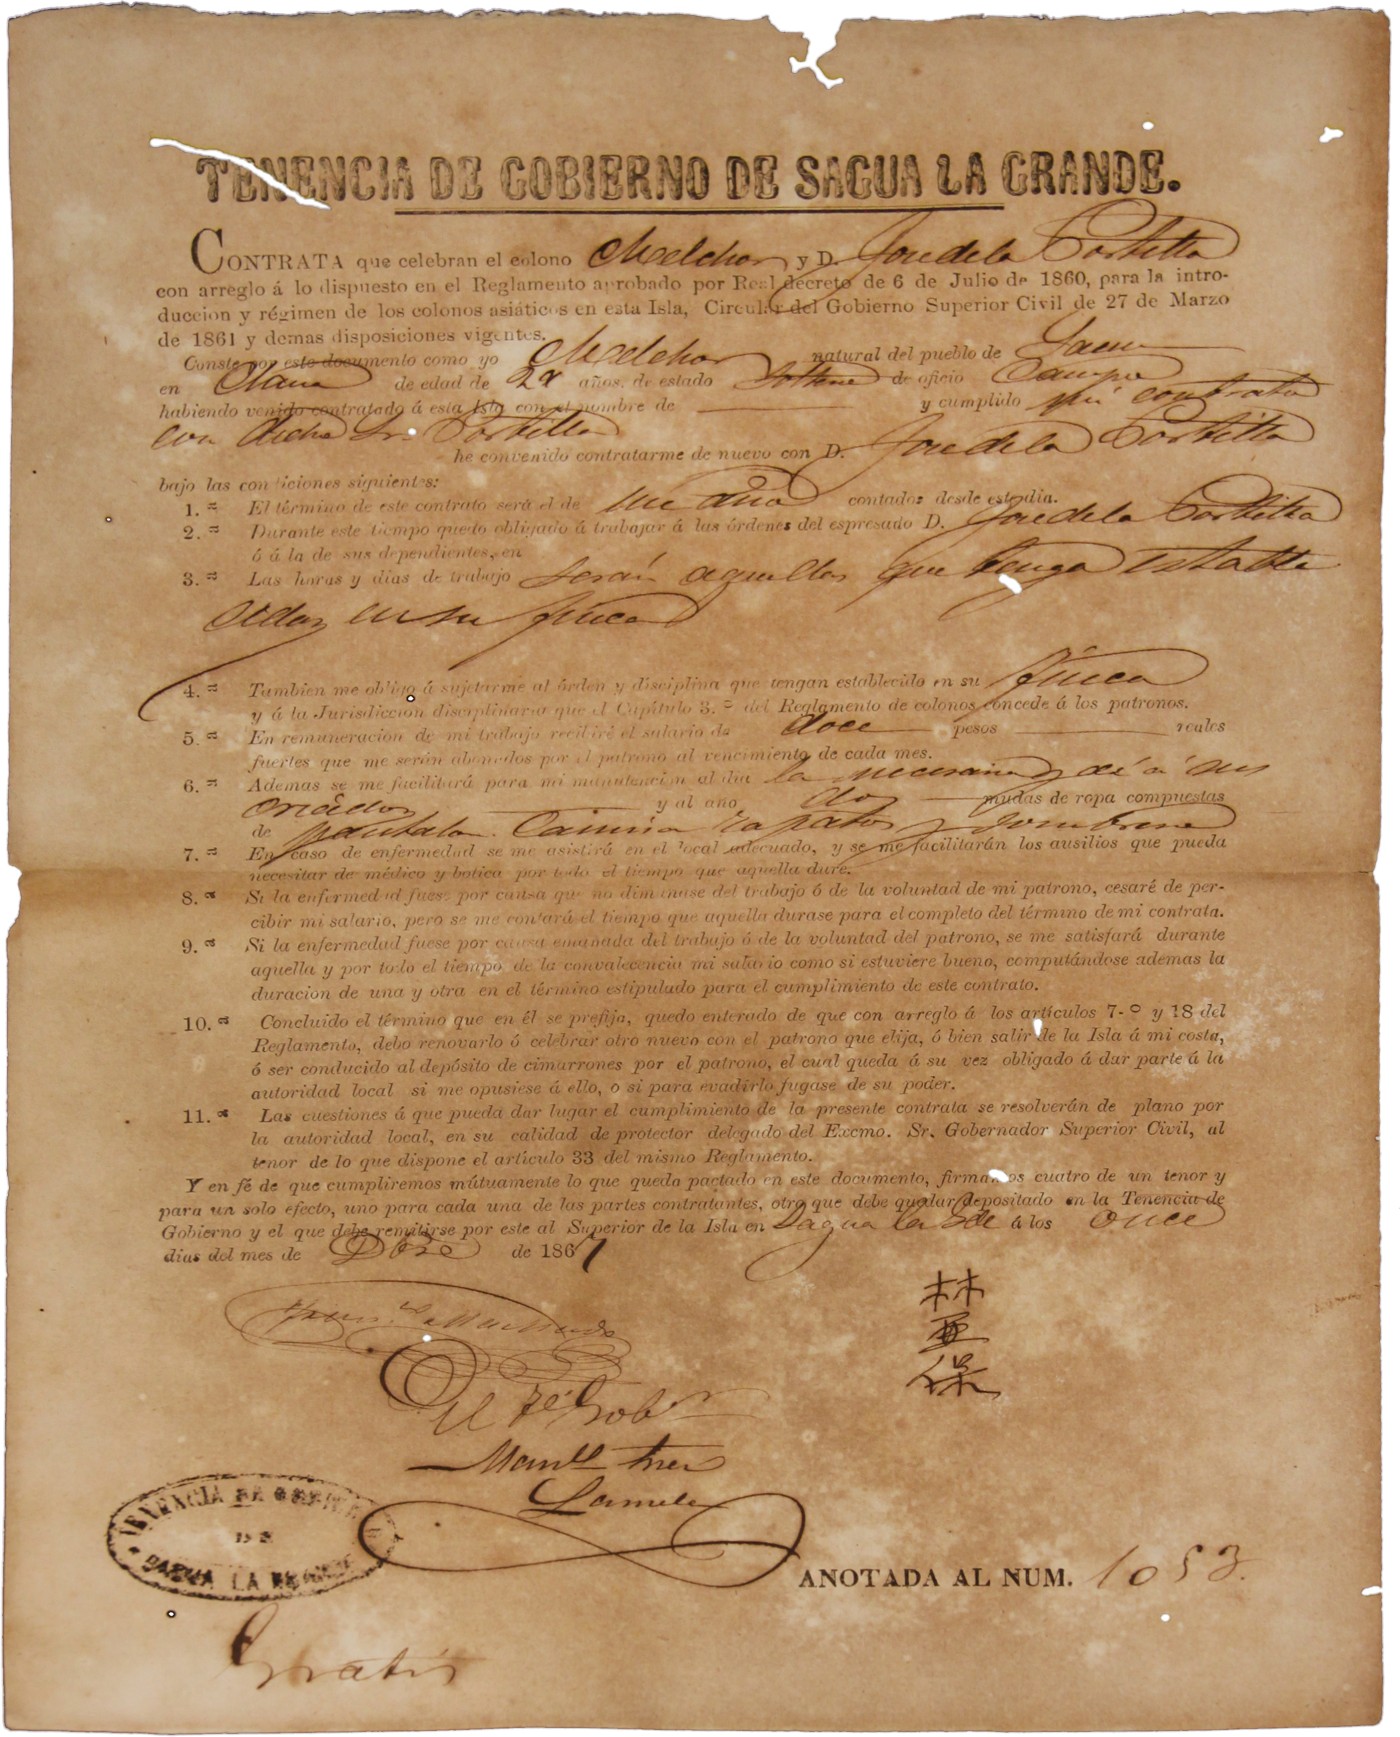 TENENCIA DE GOBIERNO DE SAGUA LA GRANDE.
CONTRATA que celebran el colono Melchor y D. Jose de la Portilla
con arreglo á lo dispuesto en el Reglamento aprobado por Real decreto de 6 de Julio de 1860, para la intro-
duccion y régimen de los colonos asiáticos en esta Isla, Circular del Gobierno Superior Civil de 27 de Marzo
de 1861 y demas disposiciones vigentes.
Conste por este documento como yo Melchor natural del pueblo de
en China de edad de 28 años, de estado Soltero de oficio Campo
habiendo venido contratado á esta Isla con el nombre de y cumplido mi contrata
con dicho Sr. Portilla
he convenido contratarme de nuevo con D. Jose de la Portilla
bajo las condiciones siguientes:
1.ª El término de este contrato será el de un año contados desde este dia.
2.ª Durante este tiempo quedo obligado á trabajar á las órdenes del espresado D. Jose de la Portilla
ó á la de sus dependientes, en
3.ª Las horas y dias de trabajo serán aquellas que tenga estable
cidas en su finca
4.ª Tambien me obligo á sujetarme al órden y disciplina que tengan establecido en su finca
y á la Jurisdiccion disciplinaria que el Capítulo 3.º del Reglamento de colonos concede á los patronos.
5.ª En remuneracion de mi trabajo recibiré el salario de doce pesos reales
fuertes que me serán abonados por el patrono al vencimiento de cada mes.
6.ª Ademas se me facilitará para mi manutencion al dia la necesaria y dé á sus
criados y al año dos mudas de ropa compuestas
de pantalon Camisa zapatos y sombrero
7.ª En caso de enfermedad se me asistirá en el local adecuado, y se me facilitarán los ausilios que pueda
necesitar de médico y botica por todo el tiempo que aquella dure.
8.ª Si la enfermedad fuese por causa que no dimanase del trabajo ó de la voluntad de mi patrono, cesaré de per-
cibir mi salario, pero se me contará el tiempo que aquella durase para el completo del término de mi contrata.
9.ª Si la enfermedad fuese por causa emanada del trabajo ó de la voluntad del patrono, se me satisfará durante
aquella y por todo el tiempo de la convalecencia mi salario como si estuviere bueno, computándose ademas la
duracion de una y otra en el término estipulado para el cumplimiento de este contrato.
10.ª Concluido el término que en él se prefija, quedo enterado de que con arreglo á los artículos 7-º y 18 del
Reglamento, debo renovarlo ó celebrar otro nuevo con el patrono que elija, ó bien salir de la Isla á mi costa,
ó ser conducido al depósito de cimarrones por el patrono, el cual queda á su vez obligado á dar parte á la
autoridad local si me opusiese á ello, o si para evadirlo fugase de su poder.
11.ª Las cuestiones á que pueda dar lugar el cumplimiento de la presente contrata se resolverán de plano por
la autoridad local, en su calidad de protector delegado del Excmo. Sr. Gobernador Superior Civil, al
tenor de lo que dispone el artículo 33 del mismo Reglamento.
Y en fé de que cumpliremos mútuamente lo que queda pactado en este documento, firmamos cuatro de un tenor y
para un solo efecto, uno para cada una de las partes contratantes, otro que debe quedar depositado en la Tenencia de
Gobierno y el que debe remitirse por este al Superior de la Isla en Sagua la Gde á los once
dias del mes de Dbre de 1867
林
亞
保
El Te Gobr
TENENCIA DE GOBIERNO
DE
SAGUA LA GRANDE
ANOTADA AL NUM. 1053.
Gratis